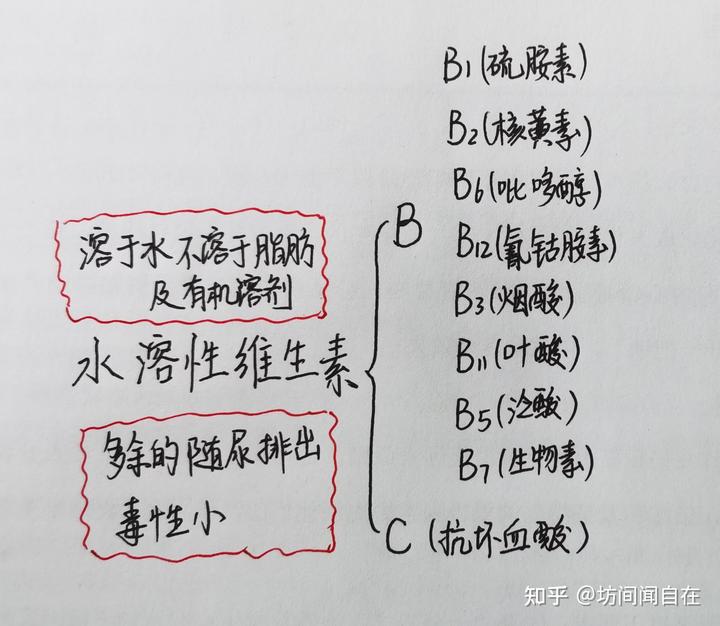 B1(硫胺素)
B2(核黄素)
B6(吡哆醇)
B12(氰钴胺素)
B3(烟酸)
B11(叶酸)
B5(泛酸)
B7(生物素)
B
溶于水不溶于脂肪
及有机溶剂
水溶性维生素
多余的随尿排出
毒性小
C(抗坏血酸)
知乎 @坊间闻自在